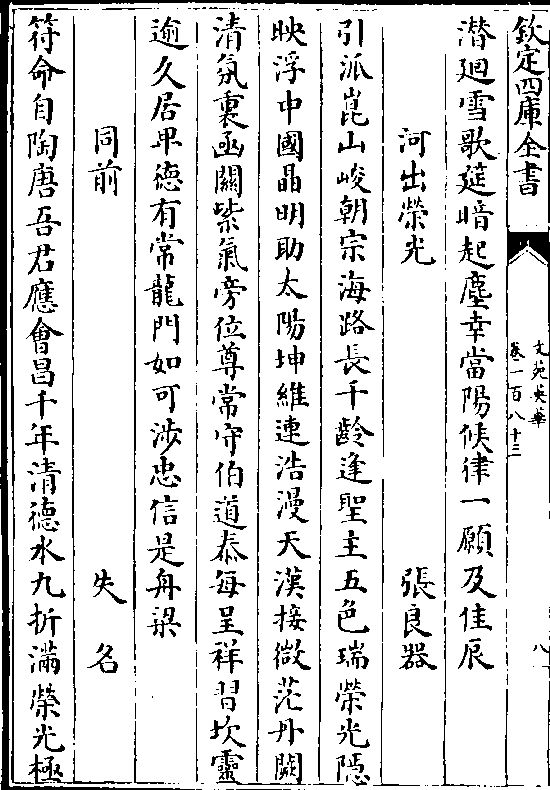 欽定四庫全書
文苑英華
卷一百八十三
八
潛廻雪歌筵暗起塵幸當陽候律一願及佳辰
河出榮光　張良器
引派崑山峻朝宗海路長千齡逢聖主五色瑞榮光隱
映浮中國晶明助太陽坤維連浩漫天漢接微茫丹闕
清氛裏函關紫氣旁位尊常守伯道泰每呈祥習坎靈
逾久居卑德有常龍門如可涉忠信是舟梁
同前　失名
符命自陶唐吾君應會昌千年清德水九折滿榮光極